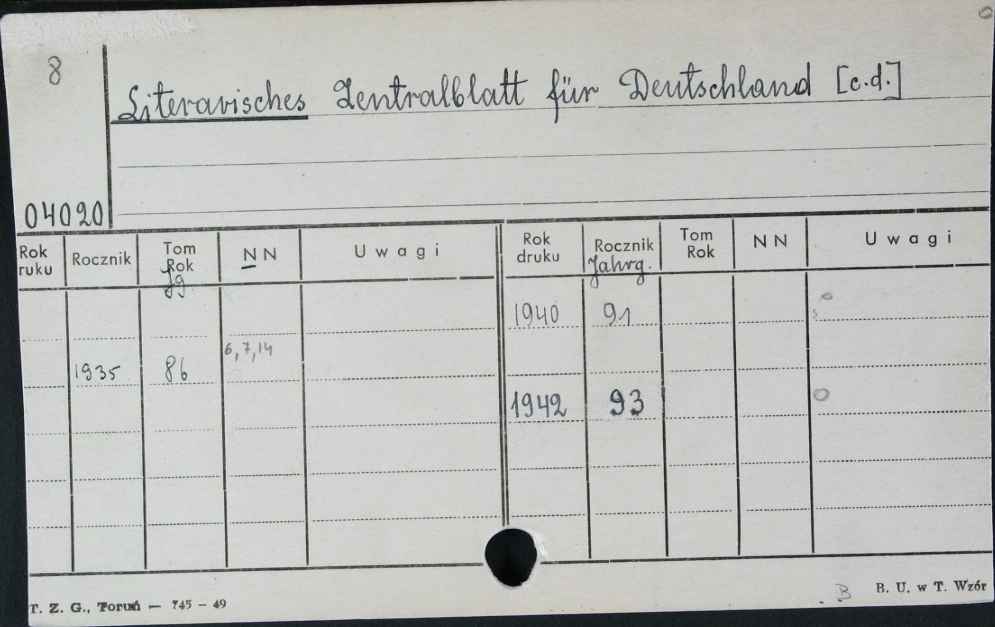 8
Literarisches Zentralblatt für Deutschland [c.d.]
04020
Rok ruku Rocznik Tom Rok Jg N N U w a g i Rok druku Rocznik Jahrg. Tom Rok N N U w a g i
1940 91
1935 86 6, 7, 14
1942 93
T. Z. G., Toruń — 745 – 49
B B. U. w T. Wzór